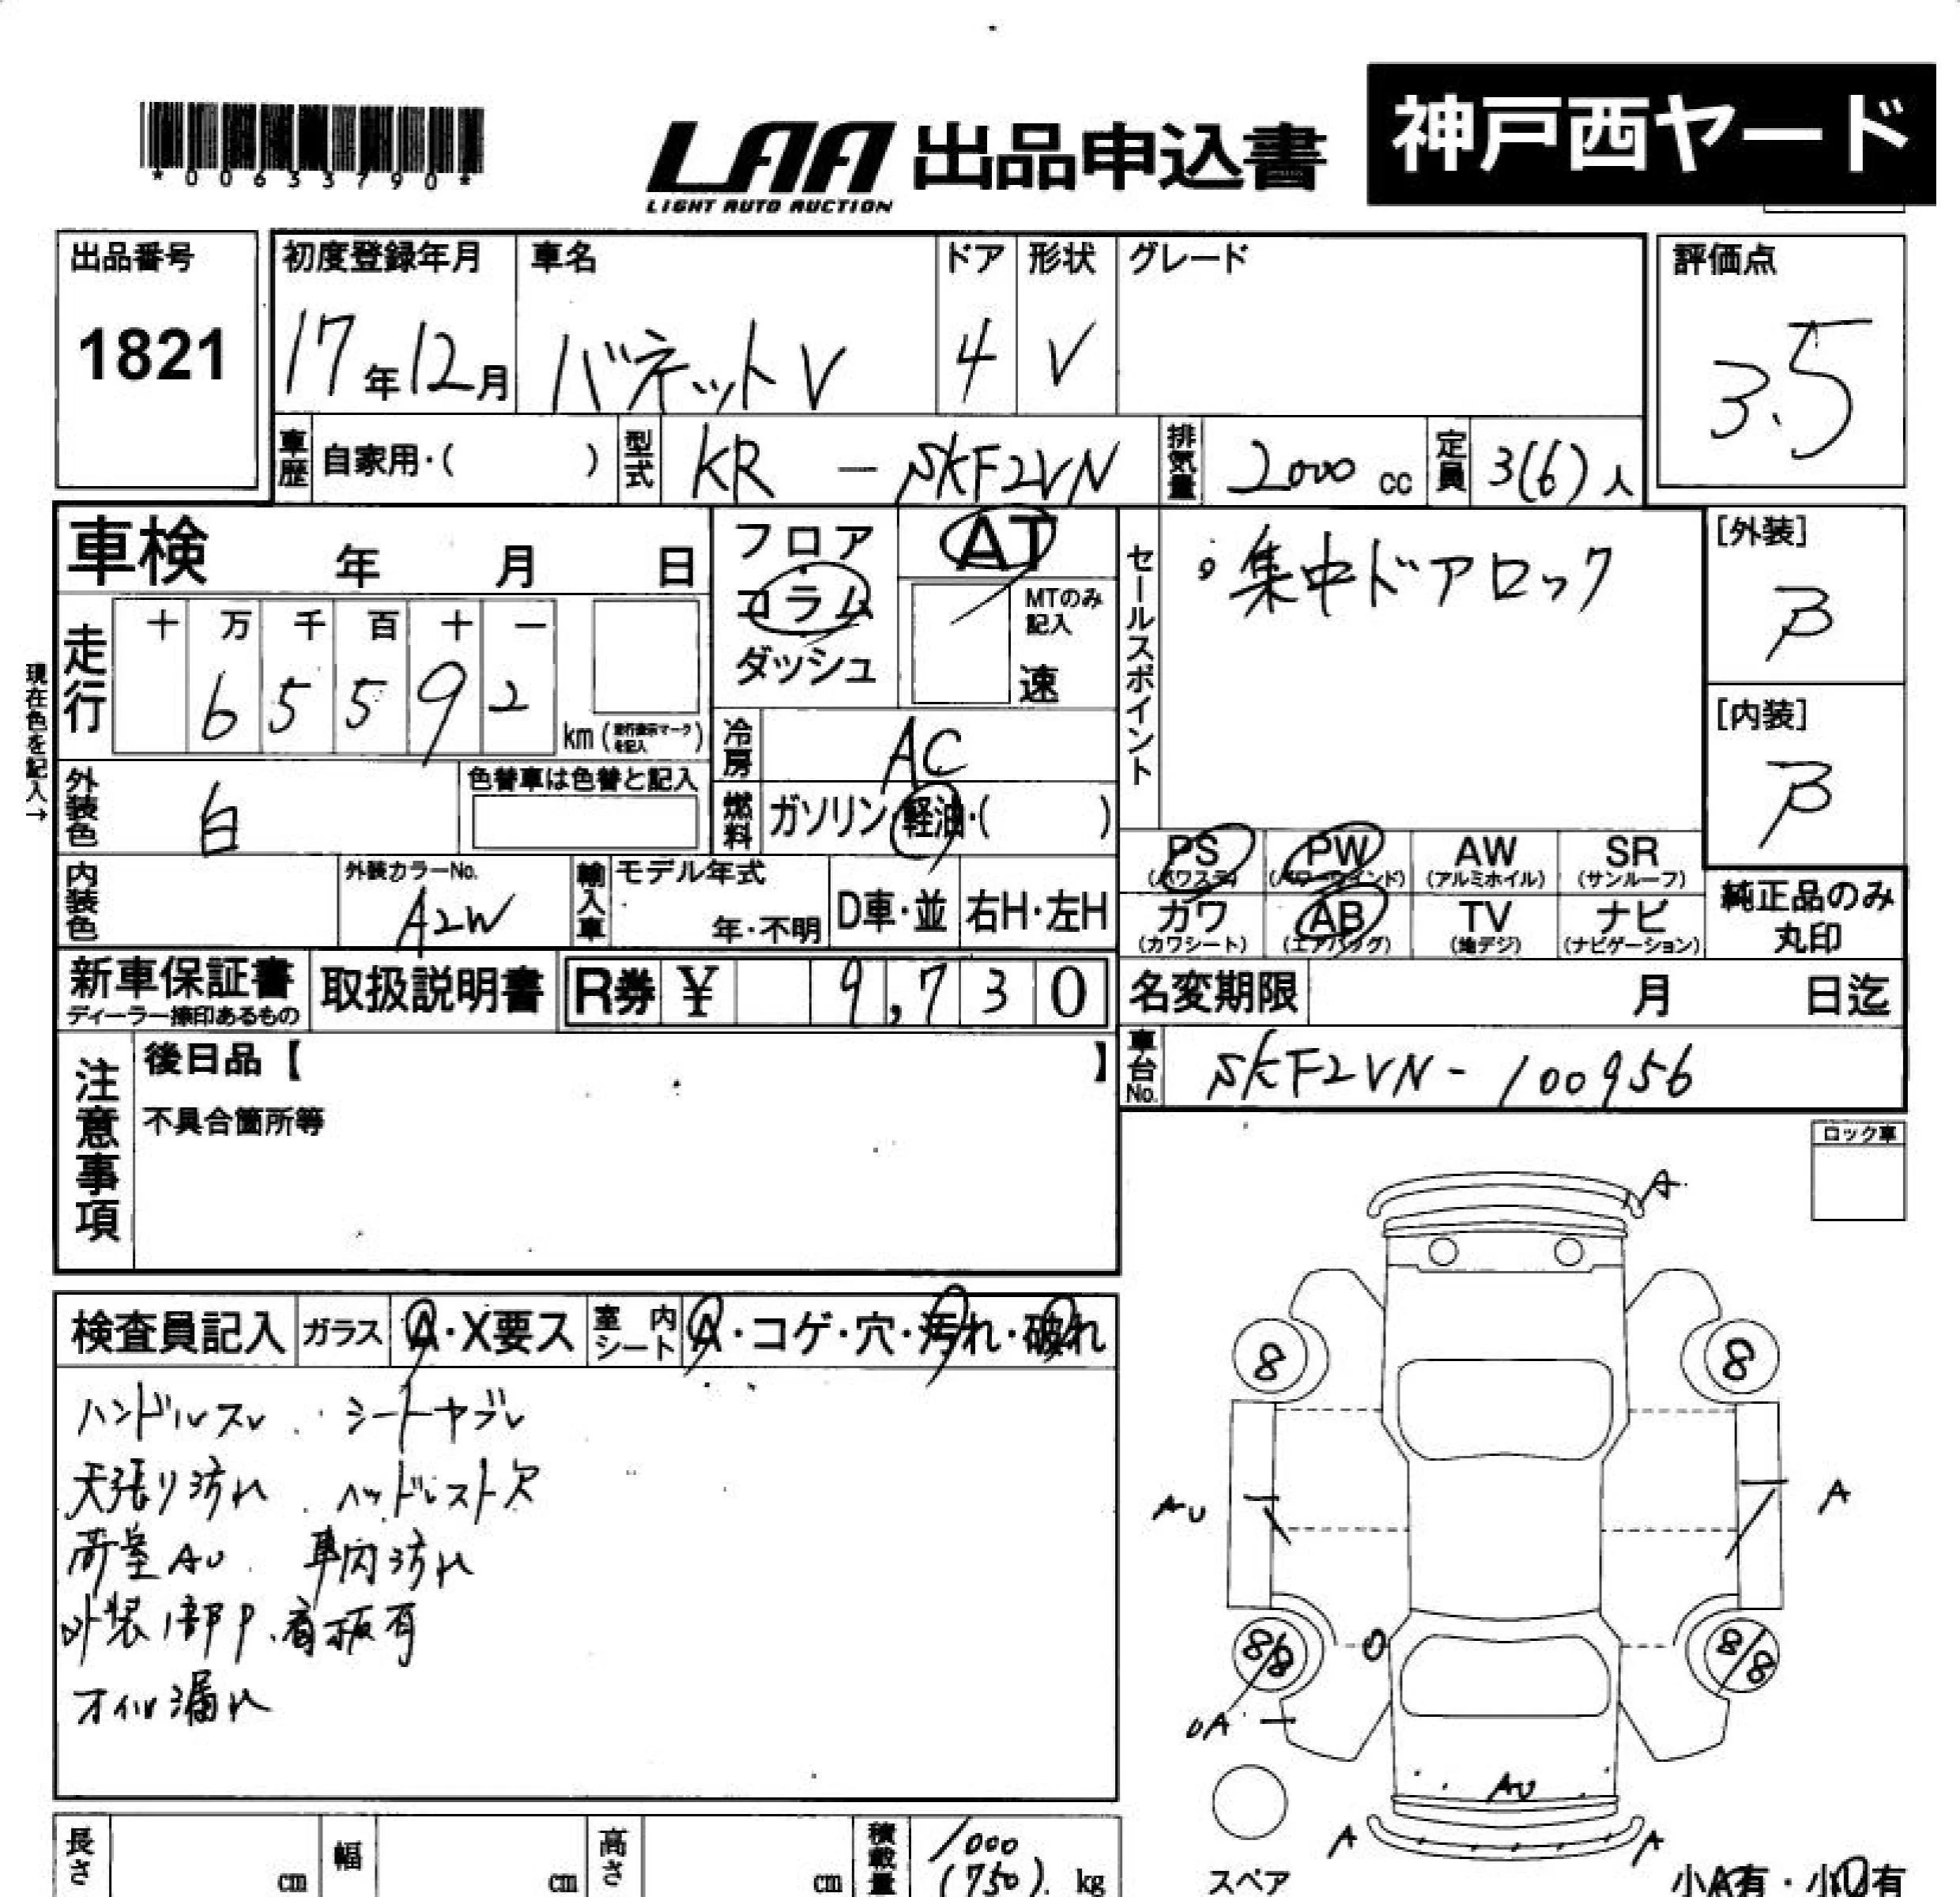 神戸西ヤード
*00633790*
LAA 出品申込書
LIGHT AUTO AUCTION
出品番号 初度登録年月 車名 ドア 形状 グレード 評価点
1821 17年12月 バネットV 4 V 3.5
車歴 自家用・( ) 型式 KR - SKF2VN 排気量 2000 cc 定員 3(6)人
車検 年 月 日 フロア AT セールスポイント ・集中ドアロック [外装]
コラム MTのみ記入 B
ダッシュ 速
現在色を記入→
走行 十 万 千 百 十 一
6 5 5 9 2 km (走行表示マークを記入) [内装]
冷房 AC B
外装色 白 色替車は色替と記入 燃料 ガソリン・軽油・( )
PS (パワステ) PW (パワーウインド) AW (アルミホイル) SR (サンルーフ)
内装色 外装カラーNo. A2W 輸入車 モデル年式 年・不明 D車・並 右H・左H
カワ (カワシート) AB (エアバッグ) TV (地デジ) ナビ (ナビゲーション) 純正品のみ丸印
新車保証書 取扱説明書 R券 ¥ 9,730 名変期限 月 日迄
ディーラー捺印あるもの
注意事項 後日品【 】 車台No. SKF2VN-100956
不具合箇所等
ロック車
A
検査員記入 ガラス A・X要ス 室内シート A・コゲ・穴・汚れ・破れ
8 8
ハンドルスレ . シートヤブレ
天張り汚れ . ヘッドレスト欠
AU A
荷室AU . 車内汚れ
外装1部P. 看板有
8/8 8/8
オイル漏れ
UA
AU
A A
長さ cm 幅 cm 高さ cm 積載量 1000 (750) kg
スペア 小A有・小U有